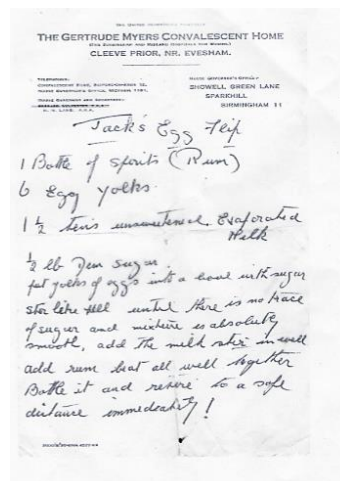 THE GERTRUDE MYERS CONVALESCENT HOME
CLEEVE PRIOR, NR. EVESHAM.
TELEPHONES:
SHOWELL GREEN LANE
SPARKHILL
BIRMINGHAM 11
Jack's Egg Flip
1 Bottle of Spirits (Rum)
6 Egg yolks.
1 1/2 tins unsweetened Evaporated
Milk
1/2 lb Dem Sugar.
put yolks of eggs into a bowl with sugar
stir like Hell until there is no trace
of sugar and mixture is absolutely
smooth, add the milk stir in well
add rum beat all well together
Bottle it and retire to a safe
distance immediately!